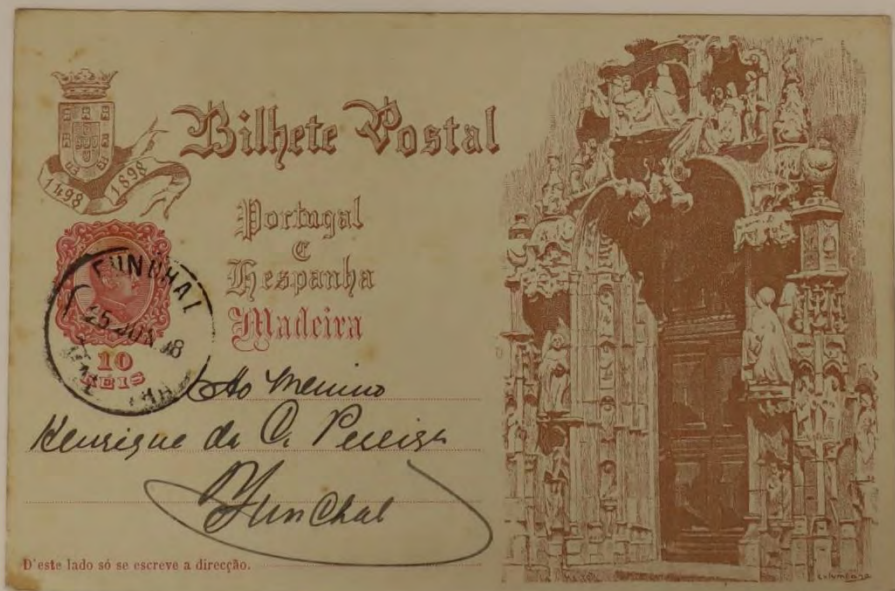 Bilhete Postal
1498 1898
Portugal
E
Hespanha
Madeira
FUNCHAL
25 JUN 98
10
REIS
Ao Menino
Henrique da C. Pereira
Funchal
D'este lado só se escreve a direcção.